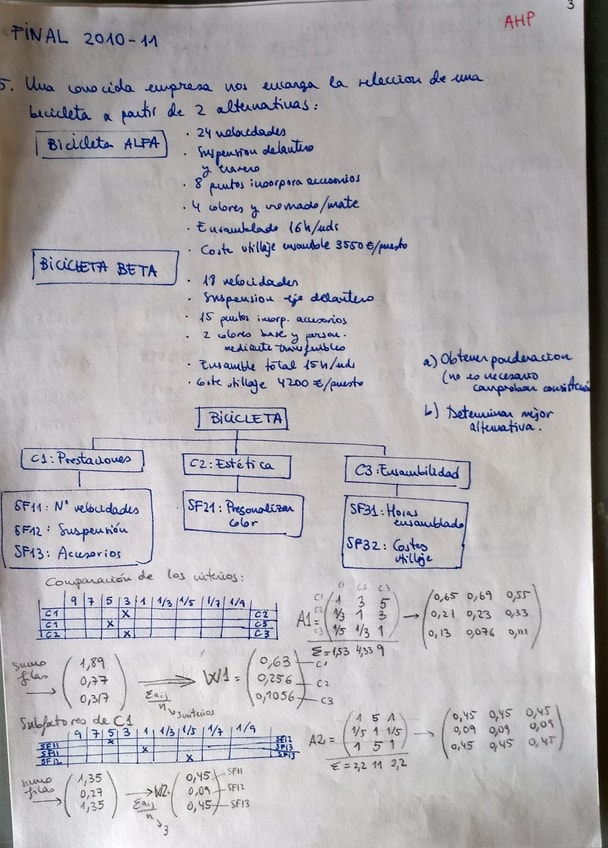 3
AHP
FINAL 2010-11
5. Una conocida empresa nos encarga la seleccion de una
bicicleta a partir de 2 alternativas:
Bicicleta ALFA
· 24 velocidades
· Suspension delantero
y trasero
· 8 puntos incorpora accesorios
· 4 colores y cromado/mate
· Ensamblado 16h/uds
· Coste utillaje ensamble 3550 €/puesto
BICICLETA BETA
· 18 velocidades
· Suspension eje delantero
· 15 puntos incorp. accesorios
· 2 colores base y person.
mediante transferibles
· Ensamble total 15h/uds
· Coste utillaje 4200 €/puesto
a) Obtener ponderacion
(no es necesario
comprobar consistencia
b) Determinar mejor
alternativa.
BICICLETA
C1: Prestaciones
C2: Estética
C3: Ensambilidad
SF11: Nº velocidades
SF12: Suspensión
SF13: Accesorios
SF21: Presonalizar
color
SF31: Horas
ensamblado
SF32: Costes
utillaje
Comparación de los criterios:
9 7 5 3 1 1/3 1/5 1/7 1/9
C1 x C2
C1 x C3
C2 x C3
C1 C2 C3
A1= C1 1 3 5
C2 1/3 1 3
C3 1/5 1/3 1
Σ= 1,53 4,33 9
0,65 0,69 0,55
0,21 0,23 0,33
0,13 0,076 0,111
suma
filas
1,89
0,77
0,317
Σaij
n → criterios
W1 =
0,63 C1
0,256 C2
0,1056 C3
Subfactores de C1
9 7 5 3 1 1/3 1/5 1/7 1/9
SF11 x SF12
SF11 x SF13
SF12 x SF13
A2= 1 5 1
1/5 1 1/5
1 5 1
Σ= 2,2 11 2,2
0,45 0,45 0,45
0,09 0,09 0,09
0,45 0,45 0,45
suma
filas
1,35
0,27
1,35
Σaij
n → 3
W2=
0,45 SF11
0,09 SF12
0,45 SF13